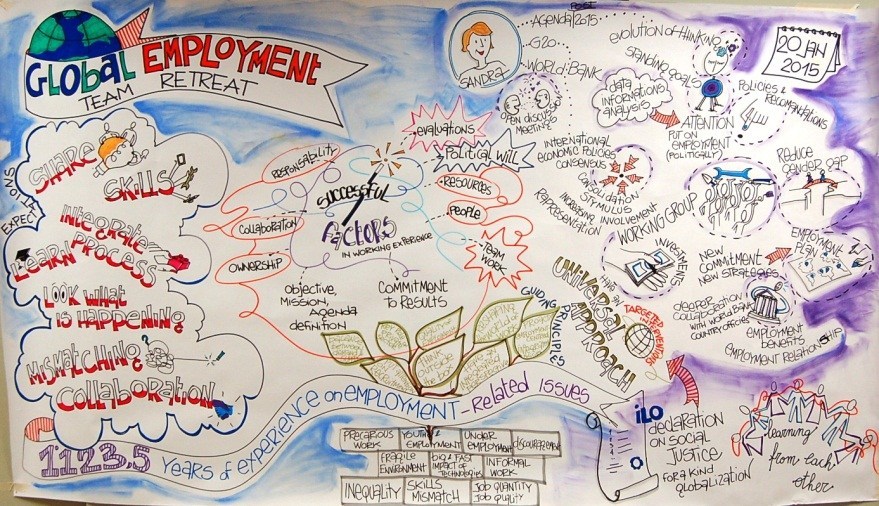 GLOBAL EMPLOYMENT
TEAM RETREAT
EXPECTATIONS
SHARE
SKILLS
INTEGRATE
LEARN PROCESS
LOOK WHAT
IS HAPPENING
MISMATCHING
COLLABORATION
1123,5 YEARS OF EXPERIENCE ON EMPLOYMENT - RELATED ISSUES
RESPONSABILITY
COLLABORATION
OWNERSHIP
OBJECTIVE,
MISSION,
AGENDA
DEFINITION
SUCCESSFUL
FACTORS
IN WORKING EXPERIENCE
COMMITMENT
TO RESULTS
EVALUATIONS
POLITICAL WILL
RESOURCES
PEOPLE
TEAM
WORK
GUIDING
PRINCIPLES
PRECARIOUS
WORK
YOUTH
EMPLOYMENT
UNDER
EMPLOYMENT
FRAGILE
ENVIRONMENT
BIG & FAST
IMPACT OF
TECHNOLOGIE
INFORMAL
WORK
INEQUALITY
SKILLS
MISMATCH
JOB QUANTITY
JOB QUALITY
SANDRA
POST
AGENDA 2015
G20
WORLD-BANK
OPEN DISCUSS
MEETING
DATA
INFORMATIONS
ANALYSIS
EVOLUTION OF THINKING
SPENDING GOALS
20 JAN
2015
ATTENTION
PUT ON
EMPLOYMENT
(POLITICALLY)
POLICIES &
RECOMANDATIONS
INTERNATIONAL
ECONOMIC POLICIES
CONSENSUS
CONSOLIDATION
STIMULUS
INCREASING INVOLVEMENT
REPRESENTATION
WORKING GROUP
REDUCE
GENDER GAP
INVESTMENTS
NEW
COMMITMENT
NEW STRATEGIES
EMPLOYMENT
PLAN
DEEPER
COLLABORATION
WITH WORLD BANK
COUNTRY OFFICES
EMPLOYMENT
BENEFITS
EMPLOYMENT RELATIONSHIP
UNIVERSAL
APPROACH
TARGETED
INTERVENTIONS
ILO
DECLARATION
ON SOCIAL
JUSTICE
FOR A KIND
GLOBALIZATION
LEARNING
FROM EACH
OTHER